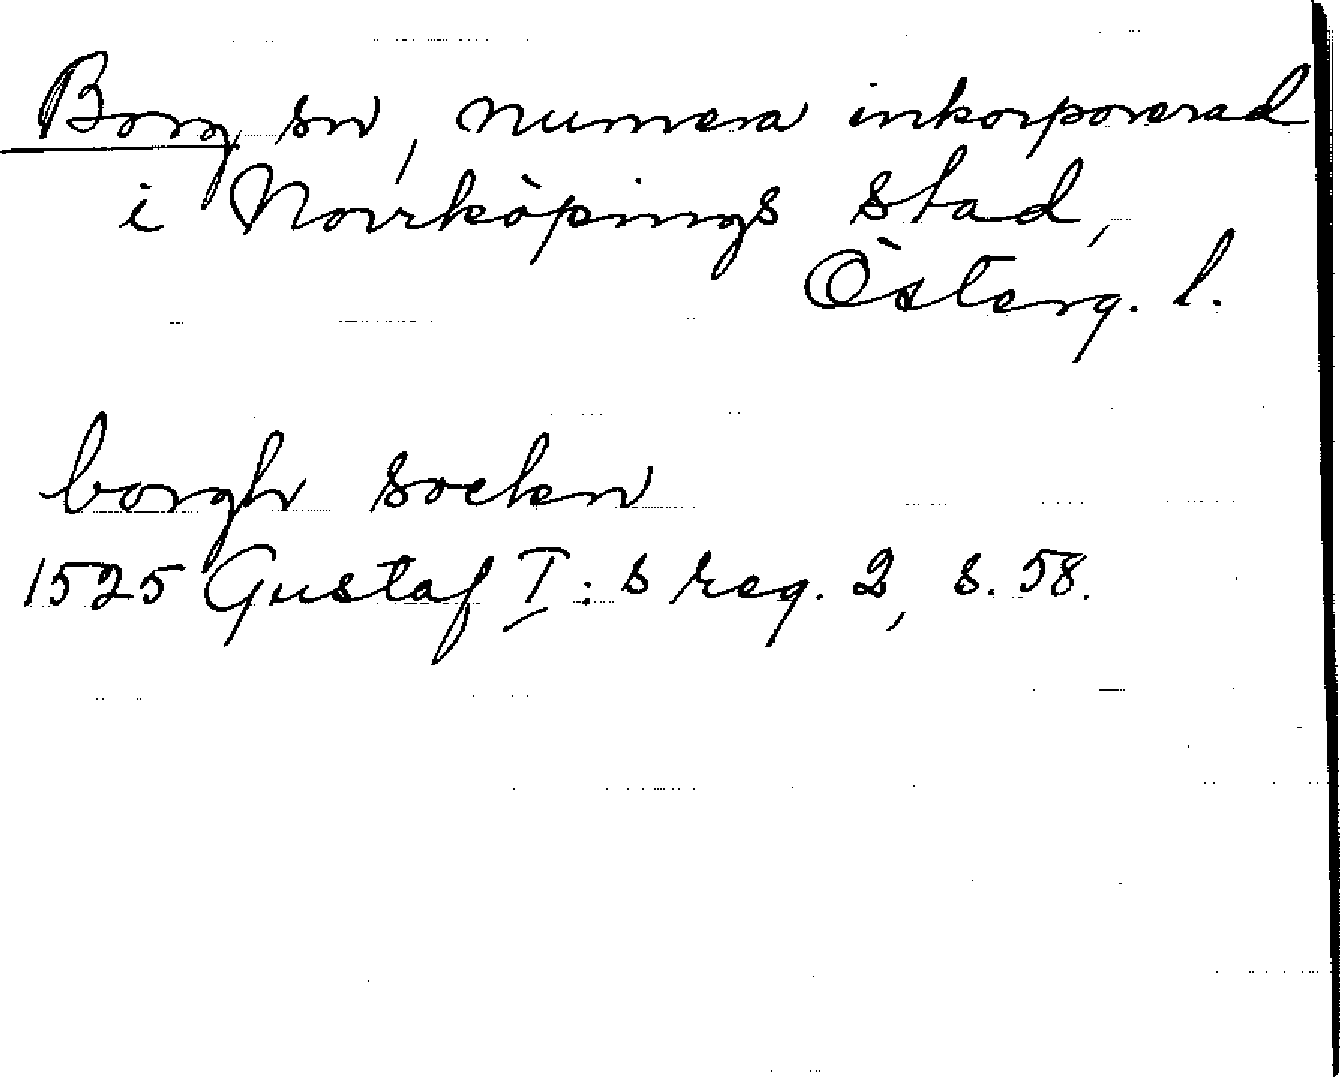 Borg sn, numera inkorporerad
i Norrköpings stad,
Österg. l.
borgh socken
1525 Gustaf I:s reg. 2, s. 58.